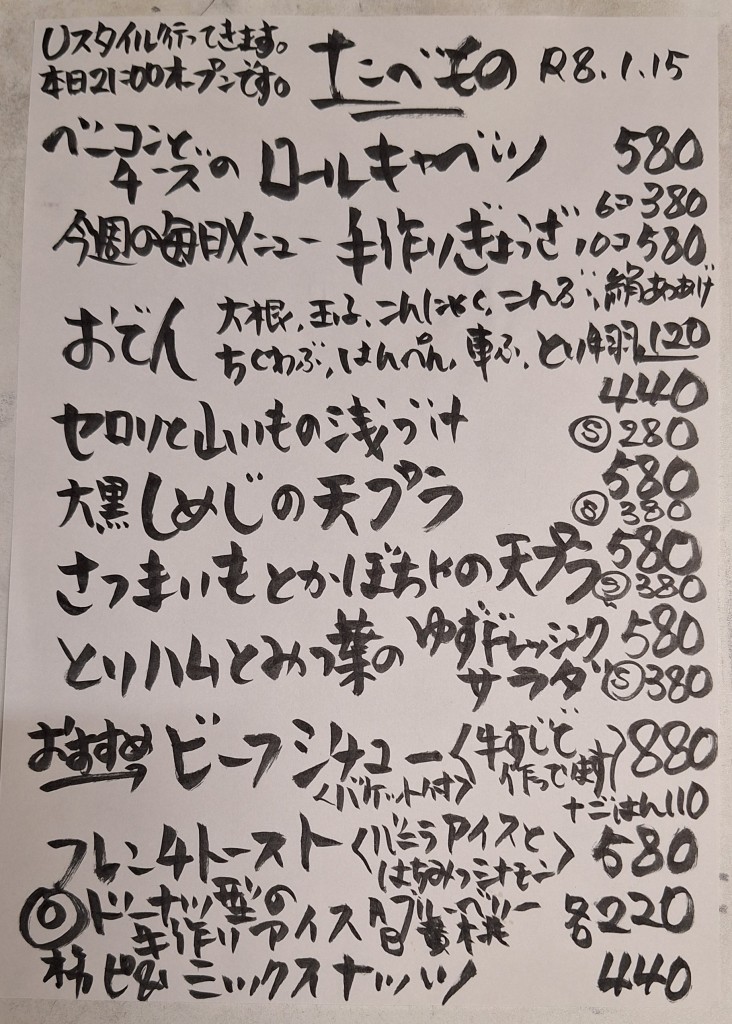 Uスタイル行ってきます。
本日21:00オープンです。
たべもの R8.1.15
ベーコンとチーズの ロールキャベツ 580
今週の毎日メニュー 手作りぎょうざ 6コ 380 10コ 580
おでん 大根、玉子、こんにゃく、こんぶ、絹あつあげ
ちくわぶ、はんぺん、車ふ、とり手羽 120
セロリと山いもの浅づけ 440 Ⓢ 280
大黒しめじの天プラ 580 Ⓢ 380
さつまいもとかぼちゃの天プラ 580 Ⓢ 380
とりハムとみつ葉の ゆずドレッシングサラダ 580 Ⓢ 380
おすすめ ビーフシチュー〈牛すじで作ってます〉 880
〈バケット付〉 +ごはん110
フレンチトースト〈バニラアイスとはちみつシナモン〉 580
ドーナツ型の手作りアイス Aブルーベリー B黄桃 各220
柿ピ&ミックスナッツ 440